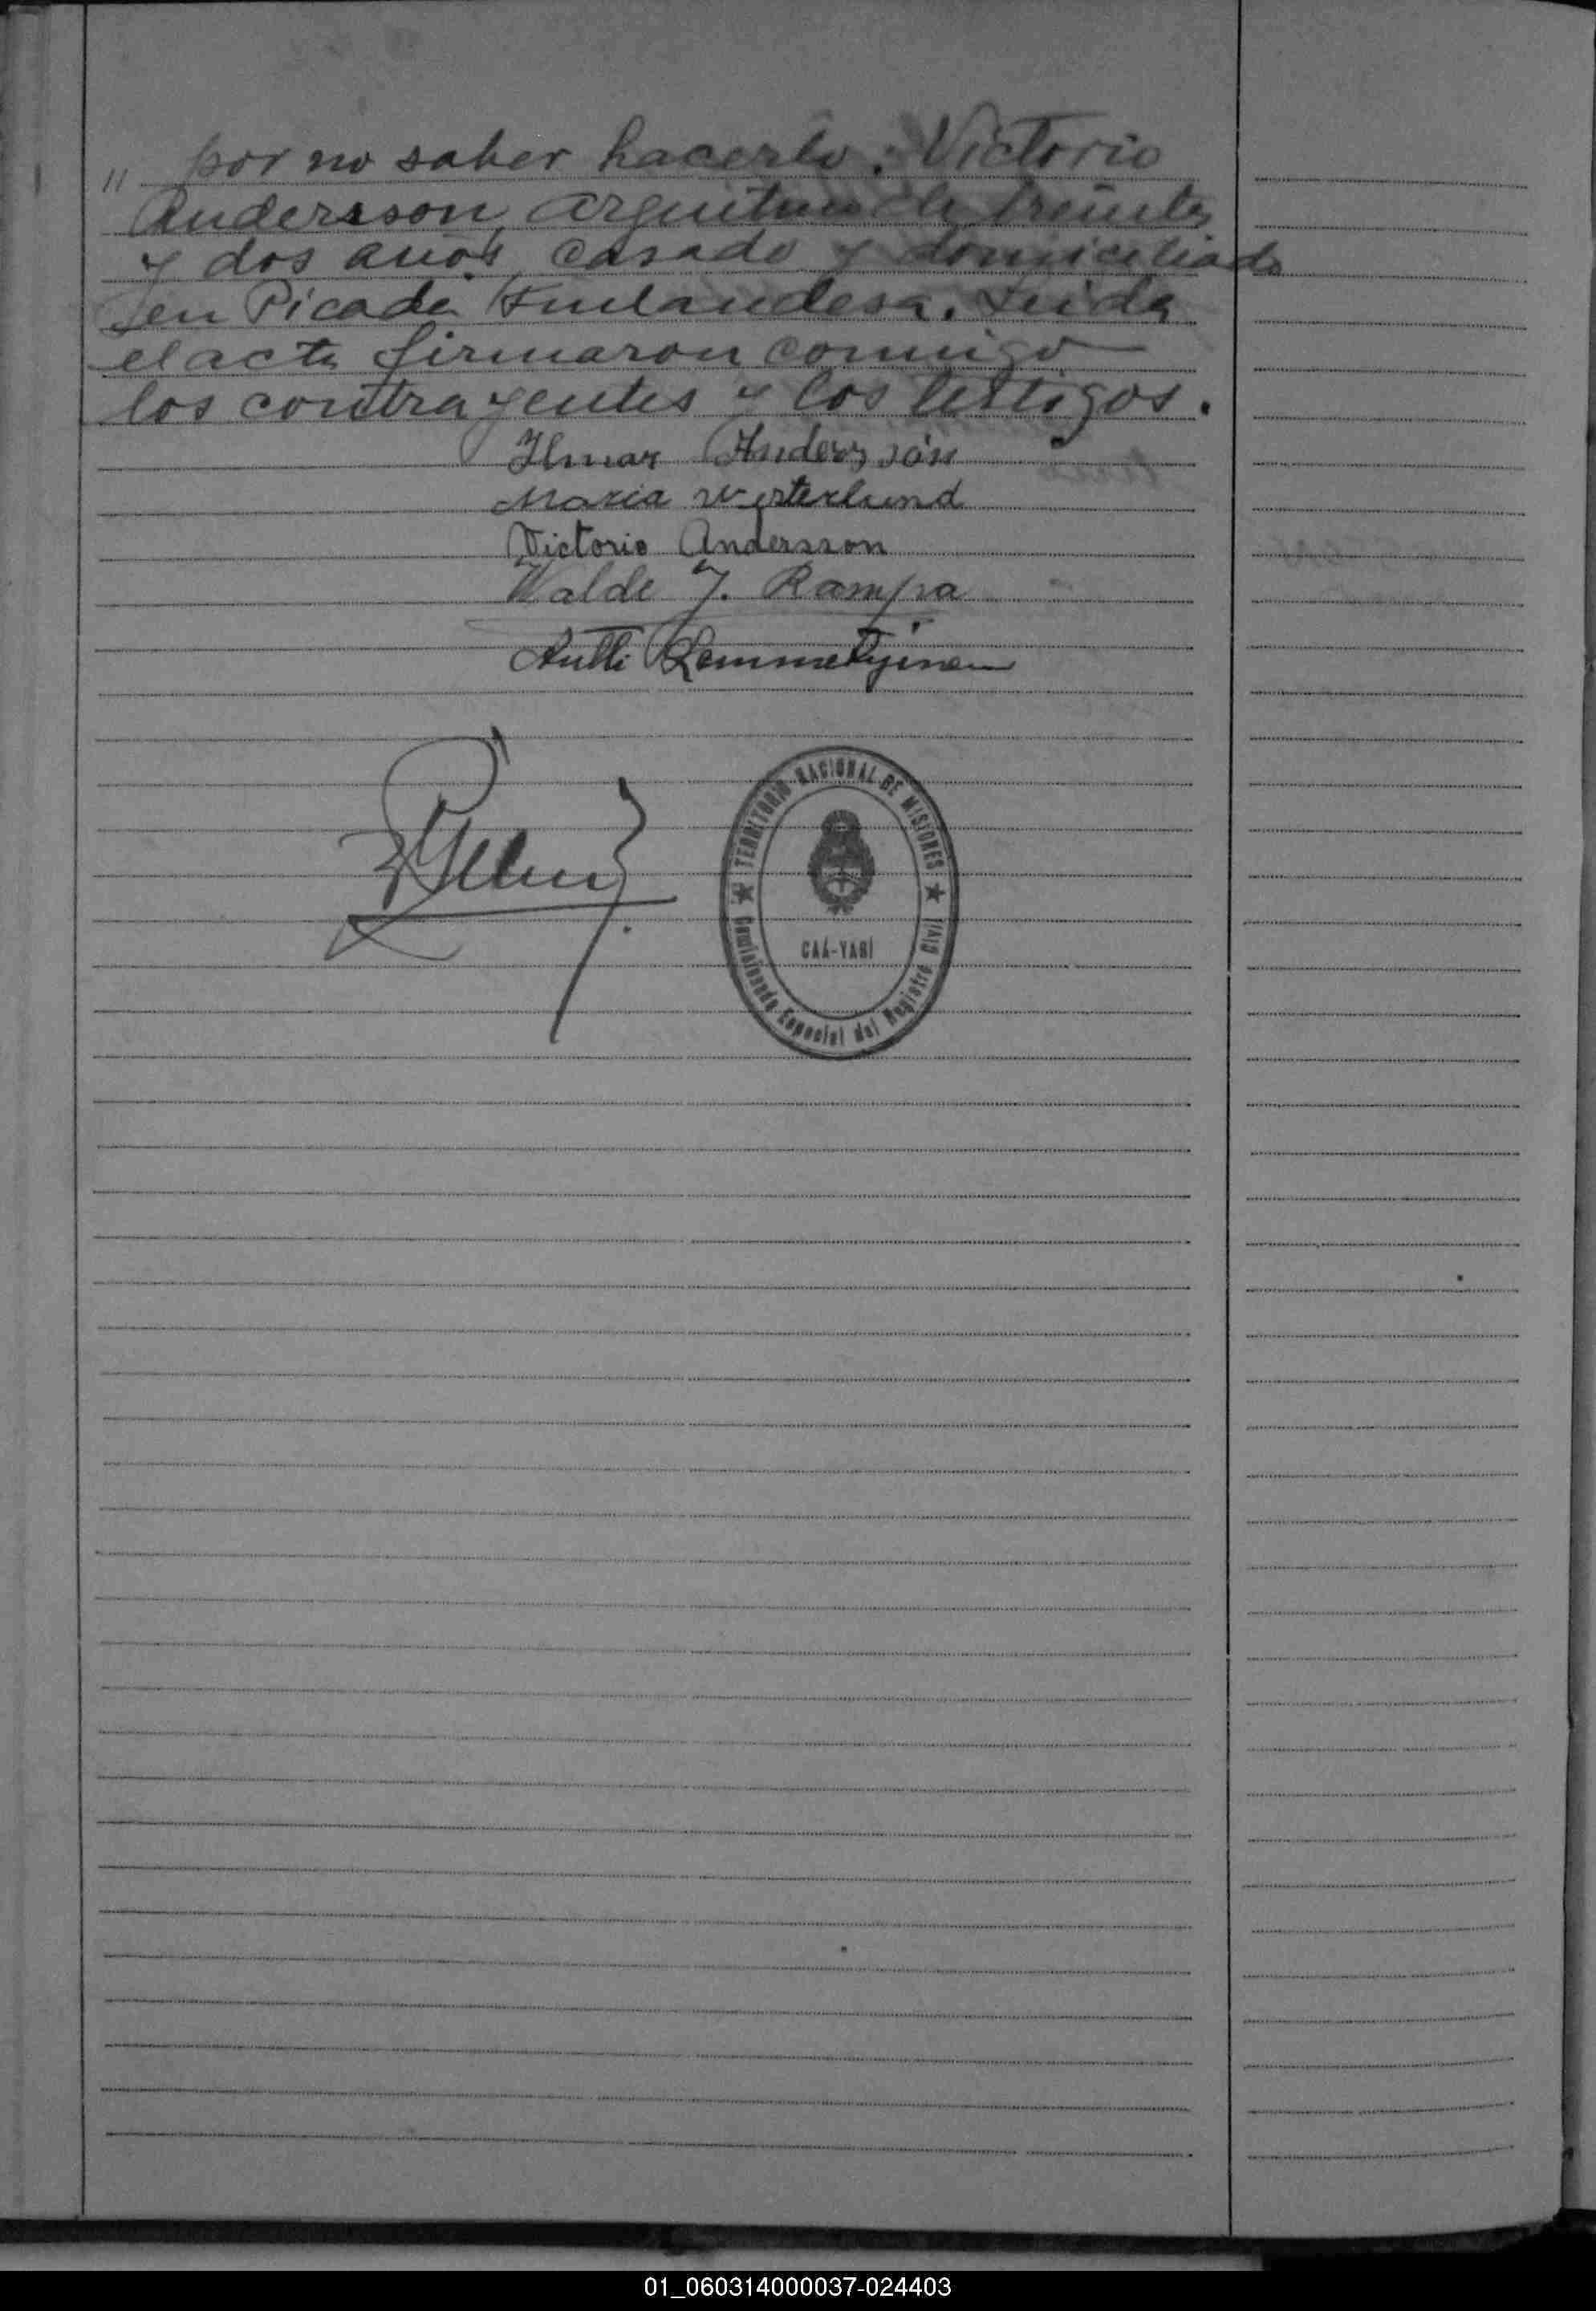 " por no saber hacerlo: Victorio
Andersson, argentino de treinta
y dos años, casado y domiciliado
en Picada Finlandesa. Leida
el acta firmaron conmigo
los contrayentes y los testigos.
Ilmar Andersson
Maria Westerlund
Victorio Andersson
Walde J. Rampa
Antti Lemmetyinen
TERRITORIO NACIONAL DE MISIONES
CAÁ-YARÍ
Comisionado Especial del Registro Civil
01_060314000037-024403